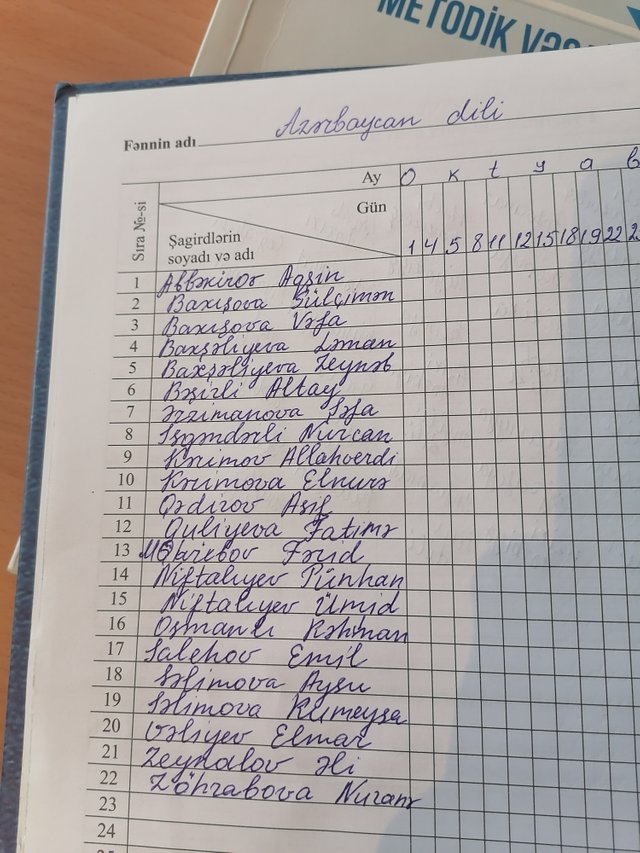 METODİK VƏS
Fənnin adı Azərbaycan dili
Sıra №-si
Ay O K t y a b
Gün
Şagirdlərin
soyadı və adı
1 4 5 8 11 12 15 18 19 22 2
1 Abbəxirov Aqşin
2 Baxışova Gülçimən
3 Baxışova Vəfa
4 Baxşəliyeva Ləman
5 Baxşəliyeva Zeynəb
6 Bəşirli Altay
7 Ərzimanova Səfa
8 İsgəndərli Nurcan
9 Kərimov Allahverdi
10 Kərimova Elnurə
11 Qədirov Asif
12 Quliyeva Fatimə
13 Fərid
14 Niftalıyev Pünhan
15 Niftalıyev Ümid
16 Osmanlı Rəhman
17 Salehov Emil
18 Səlimova Aysu
19 Səlimova Rumeysa
20 Vəliyev Elmar
21 Zeynalov Əli
22 Zöhrabova Nuranə
23
24
25